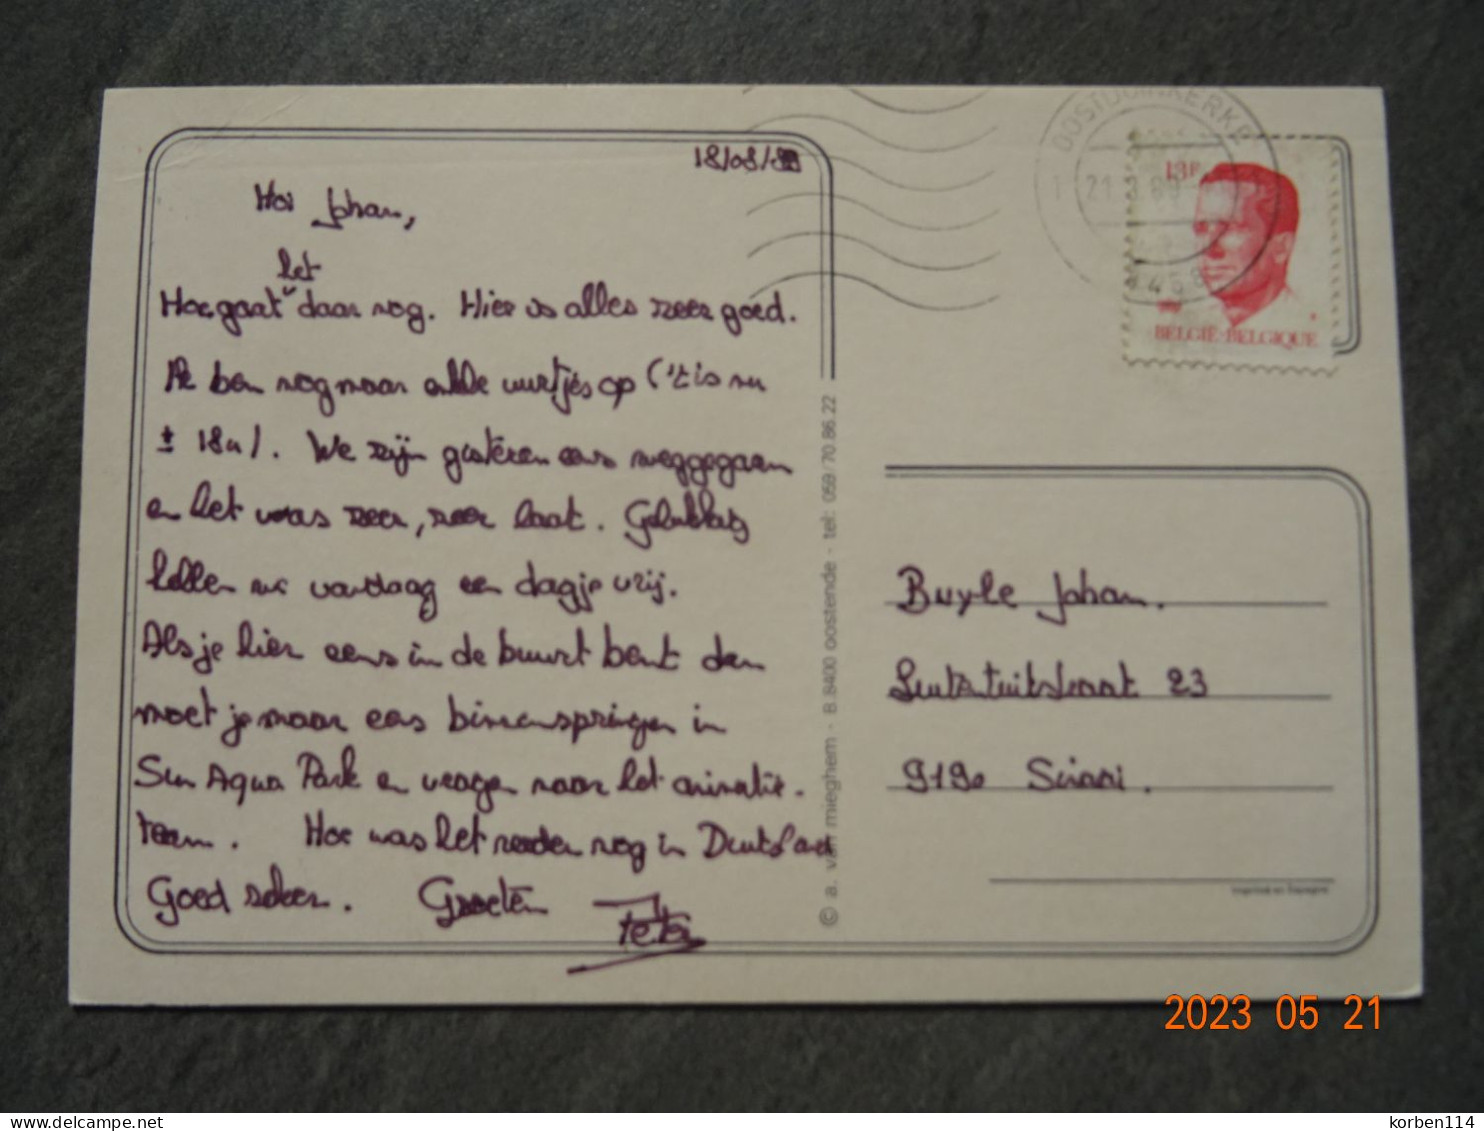 18/08/89
Hoi Johan,
het
Hoe gaat daar nog. Hier is alles zeer goed.
Ik ben nog maar enkele uurtjes op ('t is nu
± 18u). We zijn gisteren eens weggegaan
en het was zeer, zeer laat. Gelukkig
hebben we vandaag een dagje vrij.
Als je hier eens in de buurt bent dan
moet je maar eens binnenspringen in
Sun Aqua Park en vragen naar het animatie-
team. Hoe was het verder nog in Duitsland
Goed zeker. Groeten
© a. van mieghem - B.8400 oostende - tel: 059/70.86.22
OOSTDUINKERKE
21 89
458
13F
BELGIË-BELGIQUE
Buyle Johan.
23
9190 Sinaai.
2023 05 21
delcampe.net
korben114